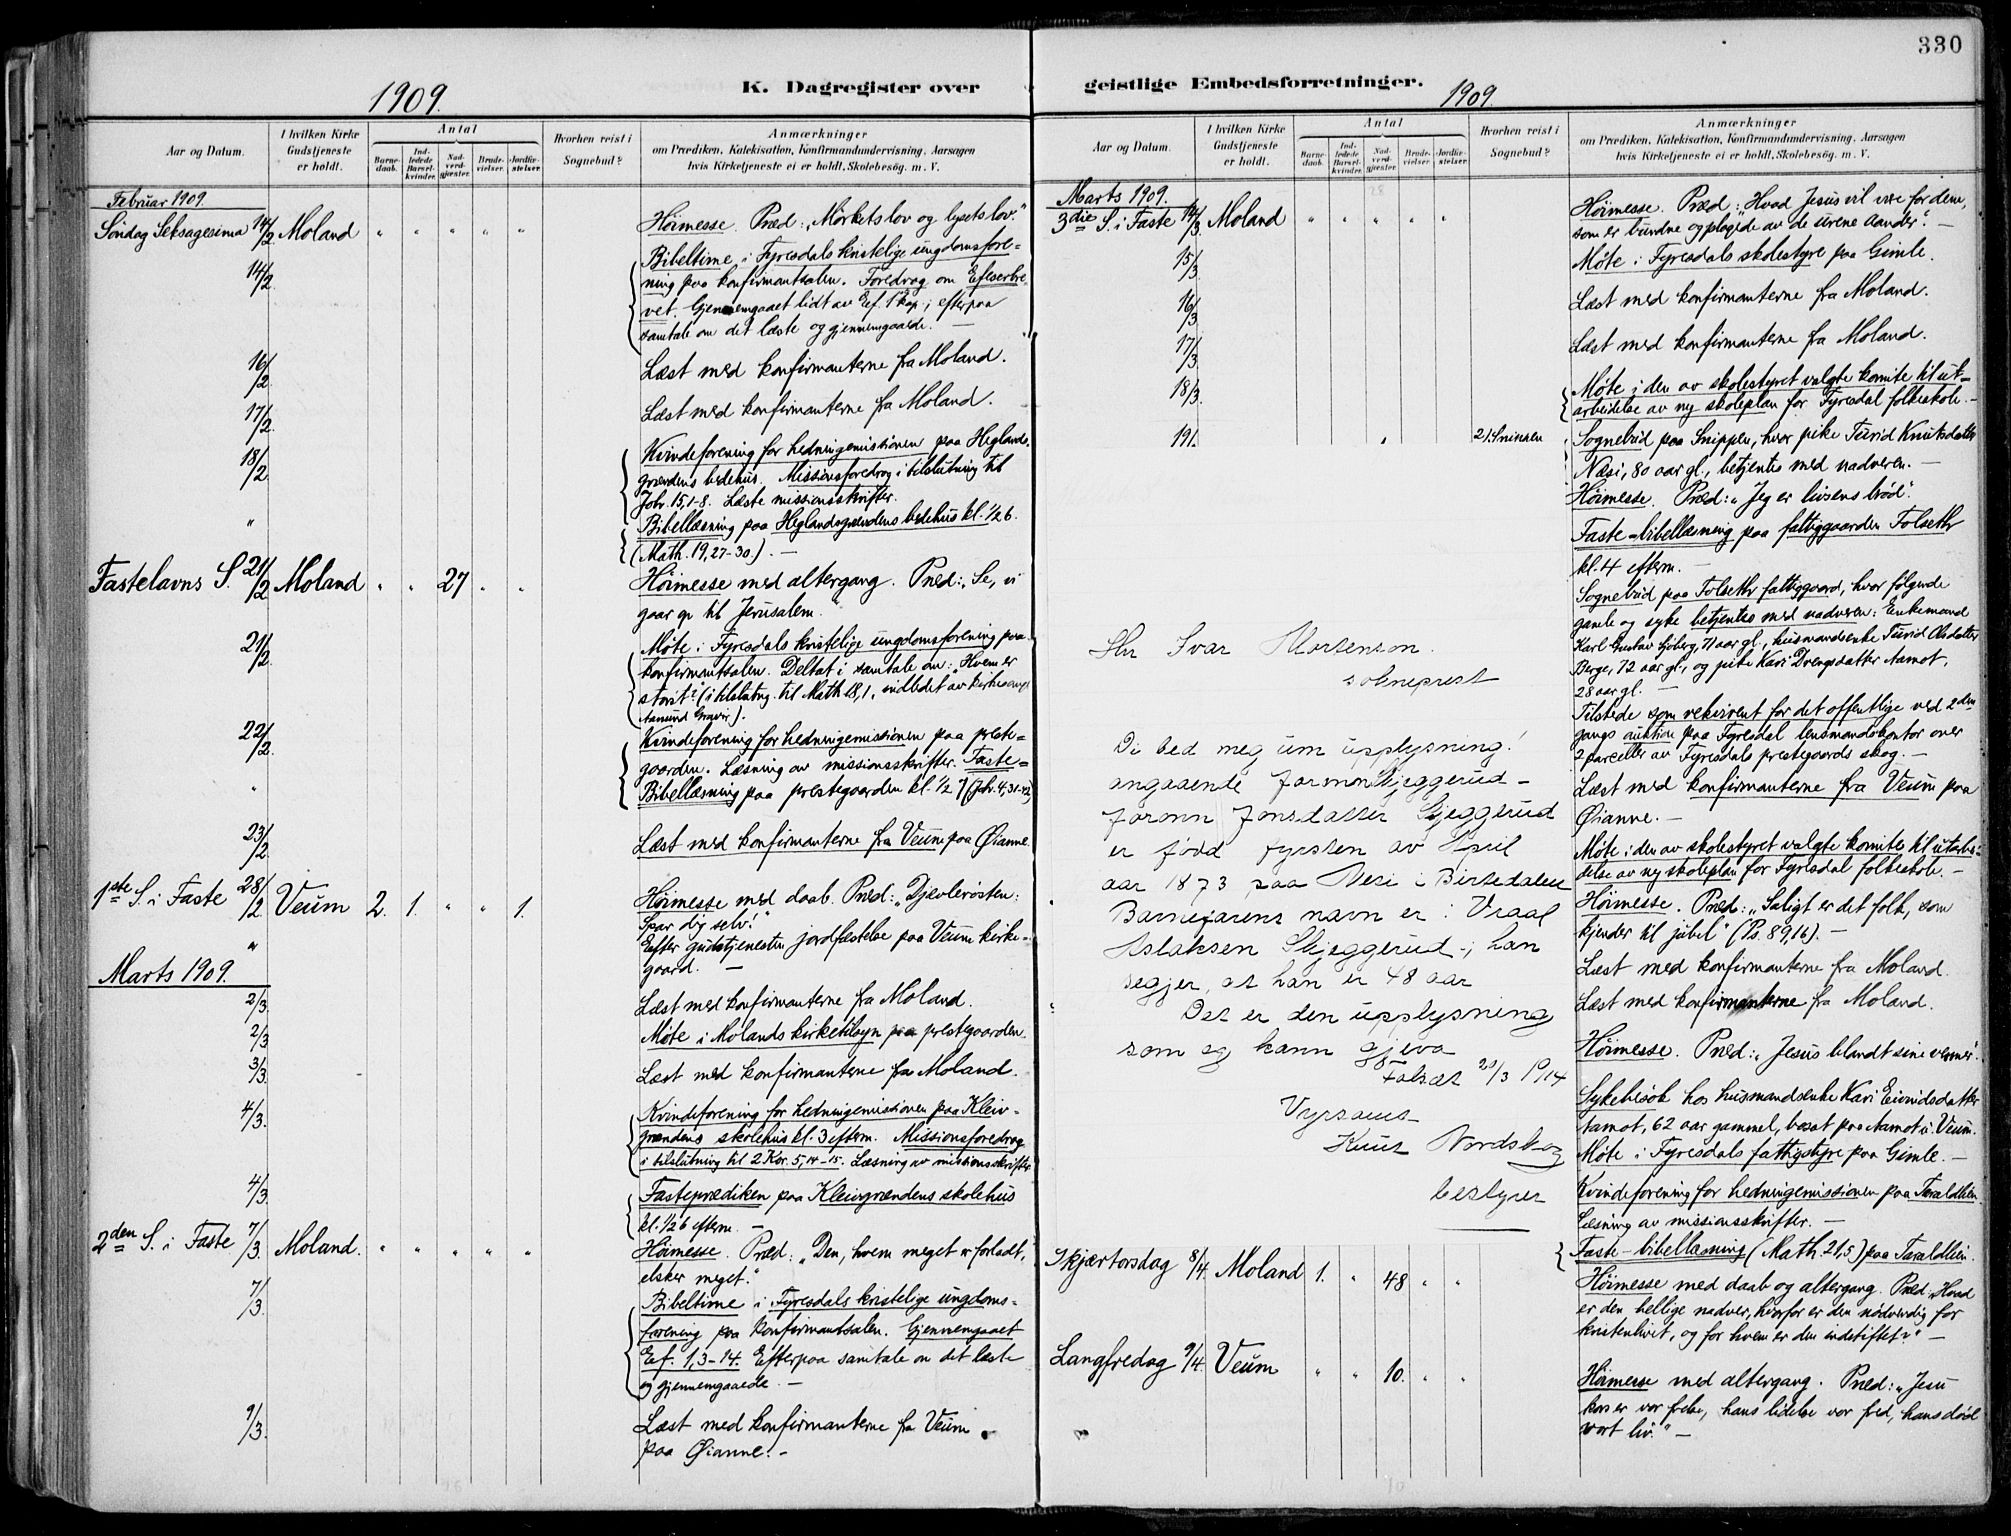 330
K. Dagregister over geistlige Embedsforretninger.
1909.
1909.
Aar og Datum.
I hvilken Kirke Gudstjeneste er holdt.
Antal
Barne-daab.
Ind-ledede Barsel-kvinder.
Nad-verd-gjæster.
Brude-vielser.
Jordfæ-stelser.
Hvorhen reist i Sognebud?
Anmærkninger
om Prædiken, Katekisation, Konfirmandundervisning, Aarsagen
hvis Kirketjeneste ei er holdt, Skolebesøg. m. V.
Februar 1909.
Søndag Seksagesima 14/2 Moland " " " " " Høimesse. Præd: „Mørkets lov og lysets lov."
14/2 Bibeltime i Fyresdals kristelige ungdomsfore=
ning paa konfirmantsalen. Foredrag om Efeserbre-
vet. Gjennemgaaet lidt av Ef. 1 kap; efterpaa
samtale om det læste og gjennemgaaede. —
16/2. Læst med konfirmanterne fra Moland.
17/2. Læst med konfirmanterne fra Moland.
18/2. Kvindeforening for hedningemissionen paa Heglands-
grændens bedehus. Missionsforedrag i tilslutning til
Joh. 15,1-8. Læste missionsskrifter.
" Bibellæsning paa Heglandsgrændens bedehus kl. ½6.
(Math. 19,27-30). —
Fastelavns S. 21/2 Moland " " 27 " " Høimesse med altergang. Præd: „Se, vi
gaar op til Jerusalem."
21/2. Møte i Fyresdals kristelige ungdomsforening paa
konfirmantsalen. Deltat i samtale om: „Hvem er
størst?" (i tilslutng. til Math 18,1, indledet av kirkesanger
Aamund Graver).
22/2. Kvindeforening for hedningemissionen paa preste=
gaarden. Læsning av missionsskrifter. Faste=
" Bibellæsning paa prestegaarden kl. ½7 (Joh. 4,31-42)
23/2. Læst med konfirmanterne fra Veum paa Øianne.
1ste S. i Faste 28/2. Veum 2. 1. " " 1. Høimesse med daab. Præd: „Djævlerøsten:
Spar dig selv!"
" Efter gudstjenesten jordfæstelse paa Veum kirke-
gaard. —
Marts 1909.
2/3. Læst med konfirmanterne fra Moland.
2/3 Møte i Molands kirketilsyn paa prestegaarden.
3/3. Læst med konfirmanterne fra Moland.
4/3. Kvindeforening for hedningemissionen paa Kleiv-
grændens skolehus kl. 3 efterm. Missionsforedrag
i tilslutning til 2 Kor. 5,14-15. Læsning av missionsskrifter
4/3 Fasteprædiken paa Kleivgrændens skolehus
kl. ½6 efterm. —
2den S. i Faste 7/3. Moland. " " " " " Høimesse. Præd: „Den, hvem meget er forladt,
elsker meget."
7/3. Bibeltime i Fyresdals kristelige ungdoms=
forening paa konfirmantsalen. Gjennemgaaet
Ef. 1,3-14. Efterpaa samtale om det læste
og gjennemgaaede. —
9/3. Læst med konfirmanterne fra Veum
paa Øianne. -
Aar og Datum.
I hvilken Kirke Gudstjeneste er holdt.
Antal
Barne-daab.
Ind-ledede Barsel-kvinder.
Nad-verd-gjæster.
Brude-vielser.
Jordfæ-stelser.
Hvorhen reist i Sognebud?
Anmærkninger
om Prædiken, Katekisation, Konfirmandundervisning, Aarsagen
hvis Kirketjeneste ei er holdt, Skolebesøg. m. V.
Marts 1909.
3die S. i Faste 14/3 Moland " " " " " Høimesse. Præd: „Hvad Jesus vil være for dem,
som er bundne og plagede av de urene aander." —
15/3. Møte i Fyresdals skolestyre paa Gimle.
16/3 Læst med konfirmanterne fra Moland.
17/3. Læst med konfirmanterne fra Moland.
18/3. Møte i den av skolestyret valgte komite til ut=
arbeidelse av ny skoleplan for Fyresdal folkeskole. -
19/. Sognebud paa Snippen, hvor pike Turid Knutsdatter
Næsi, 80 aar gl., betjentes med nadveren. —
Høimesse. Præd: „Jeg er livsens brød".
Faste-bibellæsning paa fattiggaarden Folseth
kl. 4 efterm. —
Sognebud paa Folseth fattiggaard, hvor følgende
gamle og syke betjentes med nadveren: Enkemand
Karl Gustav Sjøberg, 71 aar gl., husmandsenke Turid Olsdatter
Berge, 72 aar gl., og pike Kari Drengsdatter Aamot,
28 aar gl. —
Tilstede som rekvirent for det offentlige ved 2den
gangs auktion paa Fyresdal lensmandskontor over
2 parceller av Fyresdals prestegaards skog. —
Læst med konfirmanterne fra Veum paa
Øianne. —
Møte i den av skolestyret valgte komite til utarbei-
delse av ny skoleplan for Fyresdal folkeskole. —
Høimesse. Præd: „Saligt er det folk, som
kjender til jubel" (Ps. 89,16). —
Læst med konfirmanterne fra Moland.
Læst med konfirmanterne fra Moland.
Høimesse. Præd: „Jesus blandt sine venner".
Sykebesøk hos husmandsenke Kari Eivindsdatter
Aamot, 62 aar gammel, bosat paa Aamot i Veum.
Møte i Fyresdals fattigstyre paa Gimle. —
Kvindeforening for hedningemissionen paa Taraldlien.
Læsning av missionsskrifter. —
Faste-bibellæsning (Math. 21,5) paa Taraldlien.
Hr Ivar Mortenson.
sokneprest
Di bed meg um upplysning!
angaaende Joronn Skjeggerud -
Joronn Jonsdatter Skjeggerud
er fødd fyrsten av April
aar 1873 paa Nesi i Birtedalen
Barnefarens navn er: Vraal
Aslaksen Skjeggerud -; han
segjer, at han er 48 aar
Det er den upplysning
som eg kann gjeva
Folsæt 20/3 1914
Vyrsamt
Knut Nordskog
bestyrer
Skjærtorsdag 8/4. Moland 1. " 48 " " Høimesse med daab og altergang. Præd: „Hvad
er den hellige nadver, hvorfor er den nødvendig for
kristenlivet, og for hvem er den indstiftet?" —
Langfredag 9/4. Veum " " 10. " " Høimesse med altergang. Præd: „Jesu
kors er vor frelse, hans lidelse vor fred, hans død
vort liv." —